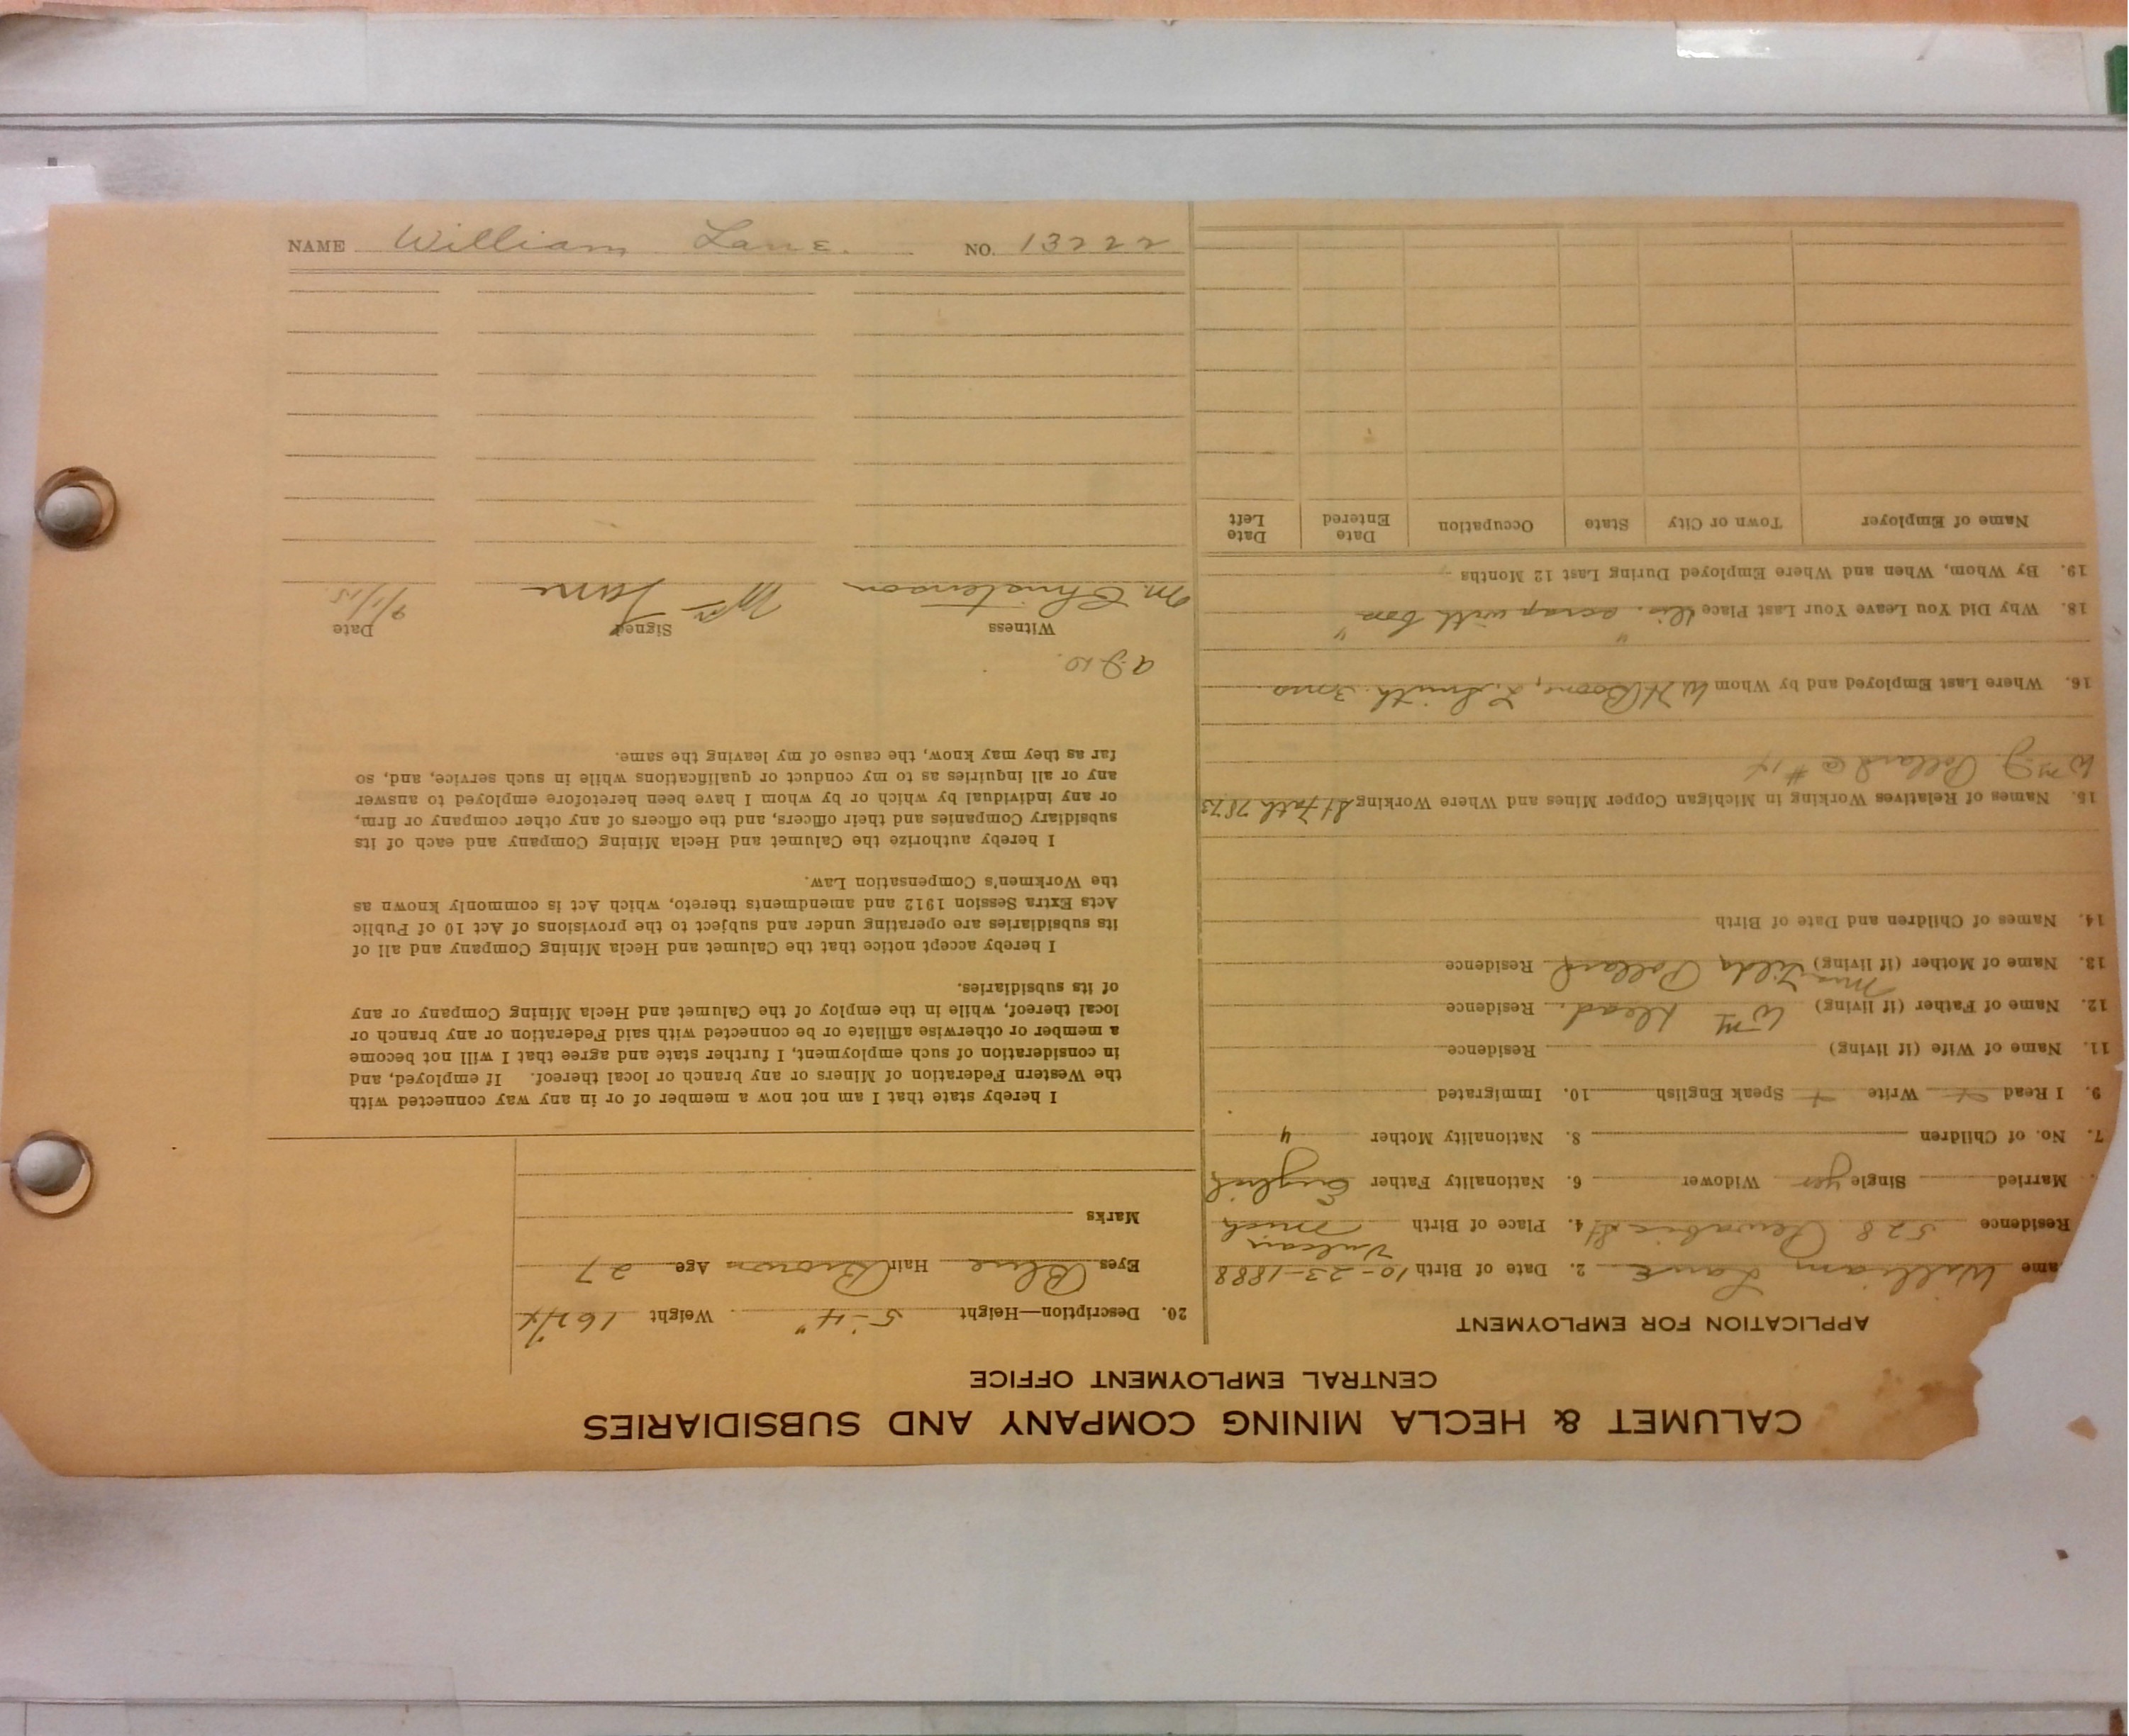 CALUMET & HECLA MINING COMPANY AND SUBSIDIARIES
CENTRAL EMPLOYMENT OFFICE
APPLICATION FOR EMPLOYMENT
ame William Lane 2. Date of Birth 10-23-1888
Residence 528 Pewabic St 4. Place of Birth Vulcan Mich
Married Single yes Widower 6. Nationality Father English
7. No. of Children 8. Nationality Mother "
9. I Read + Write + Speak English 10. Immigrated
11. Name of Wife (if living) Residence
12. Name of Father (if living) Wm Dead. Residence
13. Name of Mother (if living) Mrs Tilda Pollard Residence
14. Names of Children and Date of Birth
15. Names of Relatives Working in Michigan Copper Mines and Where Working St Fath 7873
Wm J. Pollard @ #14
16. Where Last Employed and by Whom W H Boone, L. Smith 3 mos.
18. Why Did You Leave Your Last Place scrap with boss
19. By Whom, When and Where Employed During Last 12 Months
Name of Employer Town or City State Occupation Date Entered Date Left
20. Description—Height 5-4" Weight 162 1/4
Eyes Blue Hair Brown Age 27
Marks
I hereby state that I am not now a member of or in any way connected with
the Western Federation of Miners or any branch or local thereof. If employed, and
in consideration of such employment, I further state and agree that I will not become
a member or otherwise affiliate or be connected with said Federation or any branch or
local thereof, while in the employ of the Calumet and Hecla Mining Company or any
of its subsidiaries.
I hereby accept notice that the Calumet and Hecla Mining Company and all of
its subsidiaries are operating under and subject to the provisions of Act 10 of Public
Acts Extra Session 1912 and amendments thereto, which Act is commonly known as
the Workmen's Compensation Law.
I hereby authorize the Calumet and Hecla Mining Company and each of its
subsidiary Companies and their officers, and the officers of any other company or firm,
or any individual by which or by whom I have been heretofore employed to answer
any or all inquiries as to my conduct or qualifications while in such service, and, so
far as they may know, the cause of my leaving the same.
Witness Signed Date
M. Christenson Wm Lane 9/1/15
NAME William Lane. NO. 13222